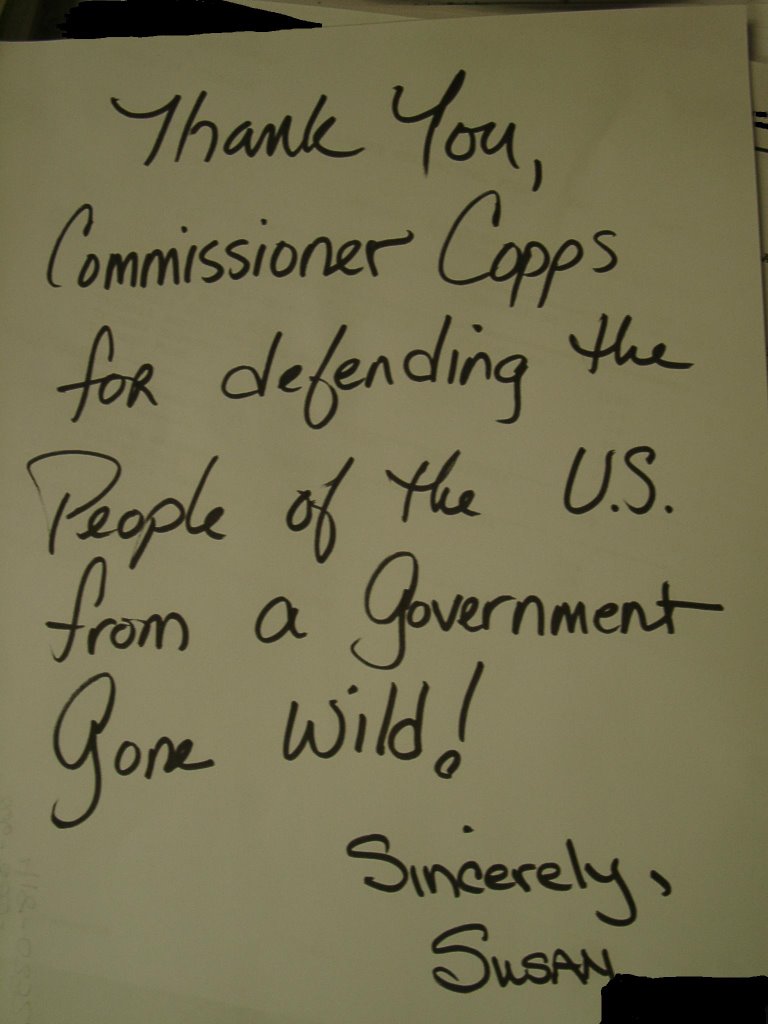 Thank You,
Commissioner Copps
for defending the
People of the U.S.
from a Government
Gone Wild!
Sincerely,
Susan